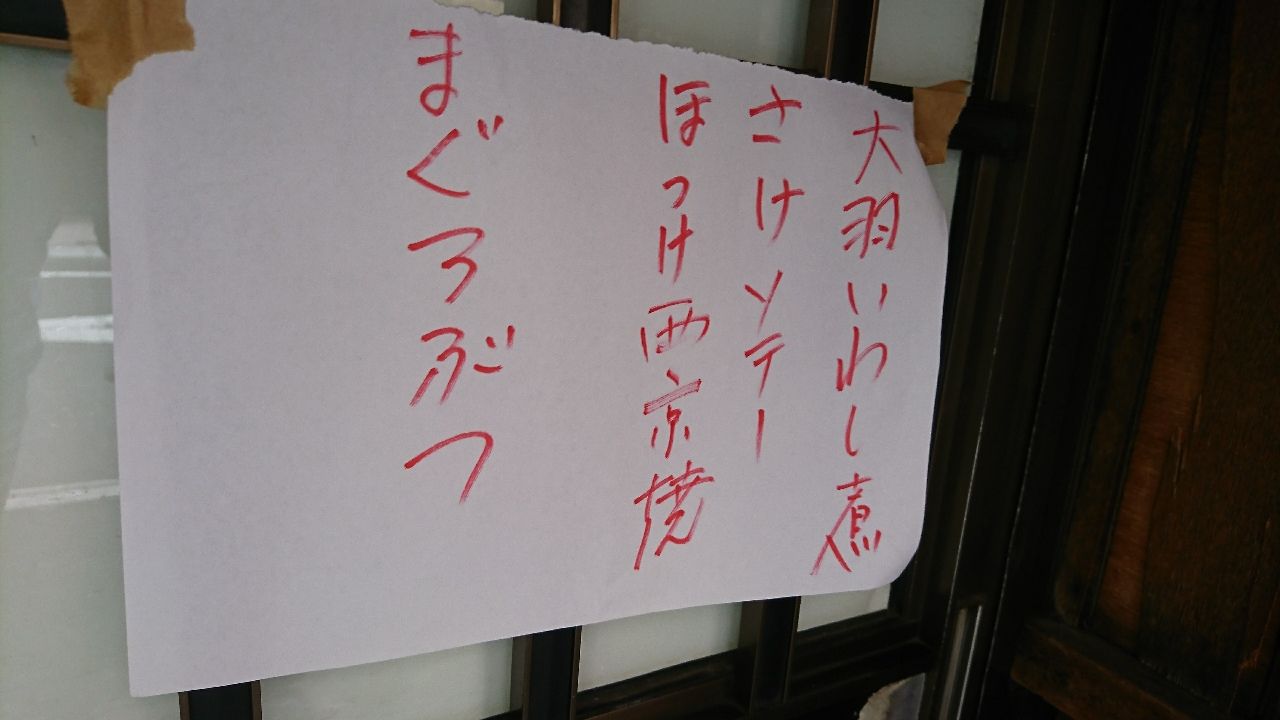 大羽いわし煮
さけソテー
ほっけ西京焼
まぐろぶつ